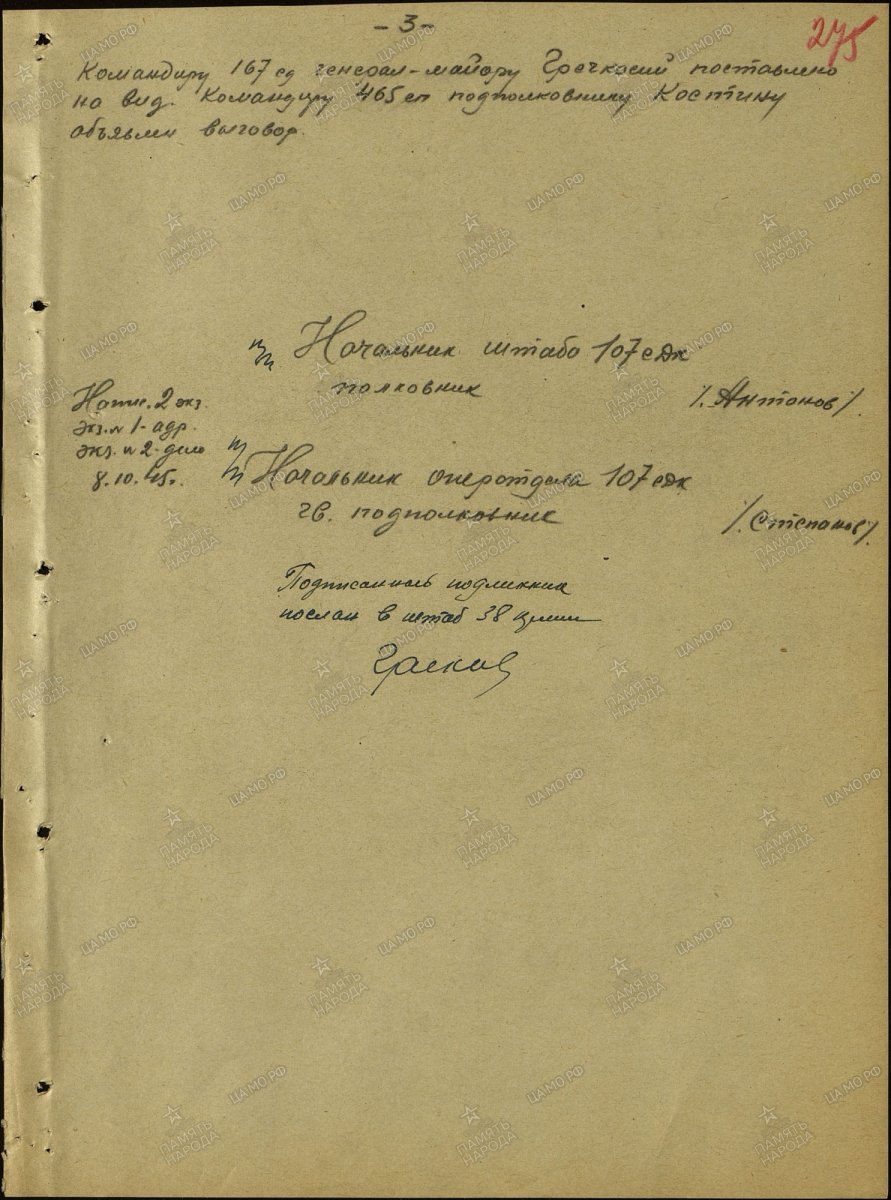 - 3 -
275
Командиру 167 сд генерал-майору Гречкосий поставлено
на вид. Командиру 465 сп подполковнику Костину
объявлен выговор.
п/п Начальник штаба 107 ск
полковник
/. Антонов /.
Напис. 2 экз.
Экз. № 1 - адр.
Экз. № 2 - дело
8.10.45г.
п/п Начальник оперотдела 107 ск
гв. подполковник
/. Степанов /.
Подписанный подлинник
послан в штаб 38 армии